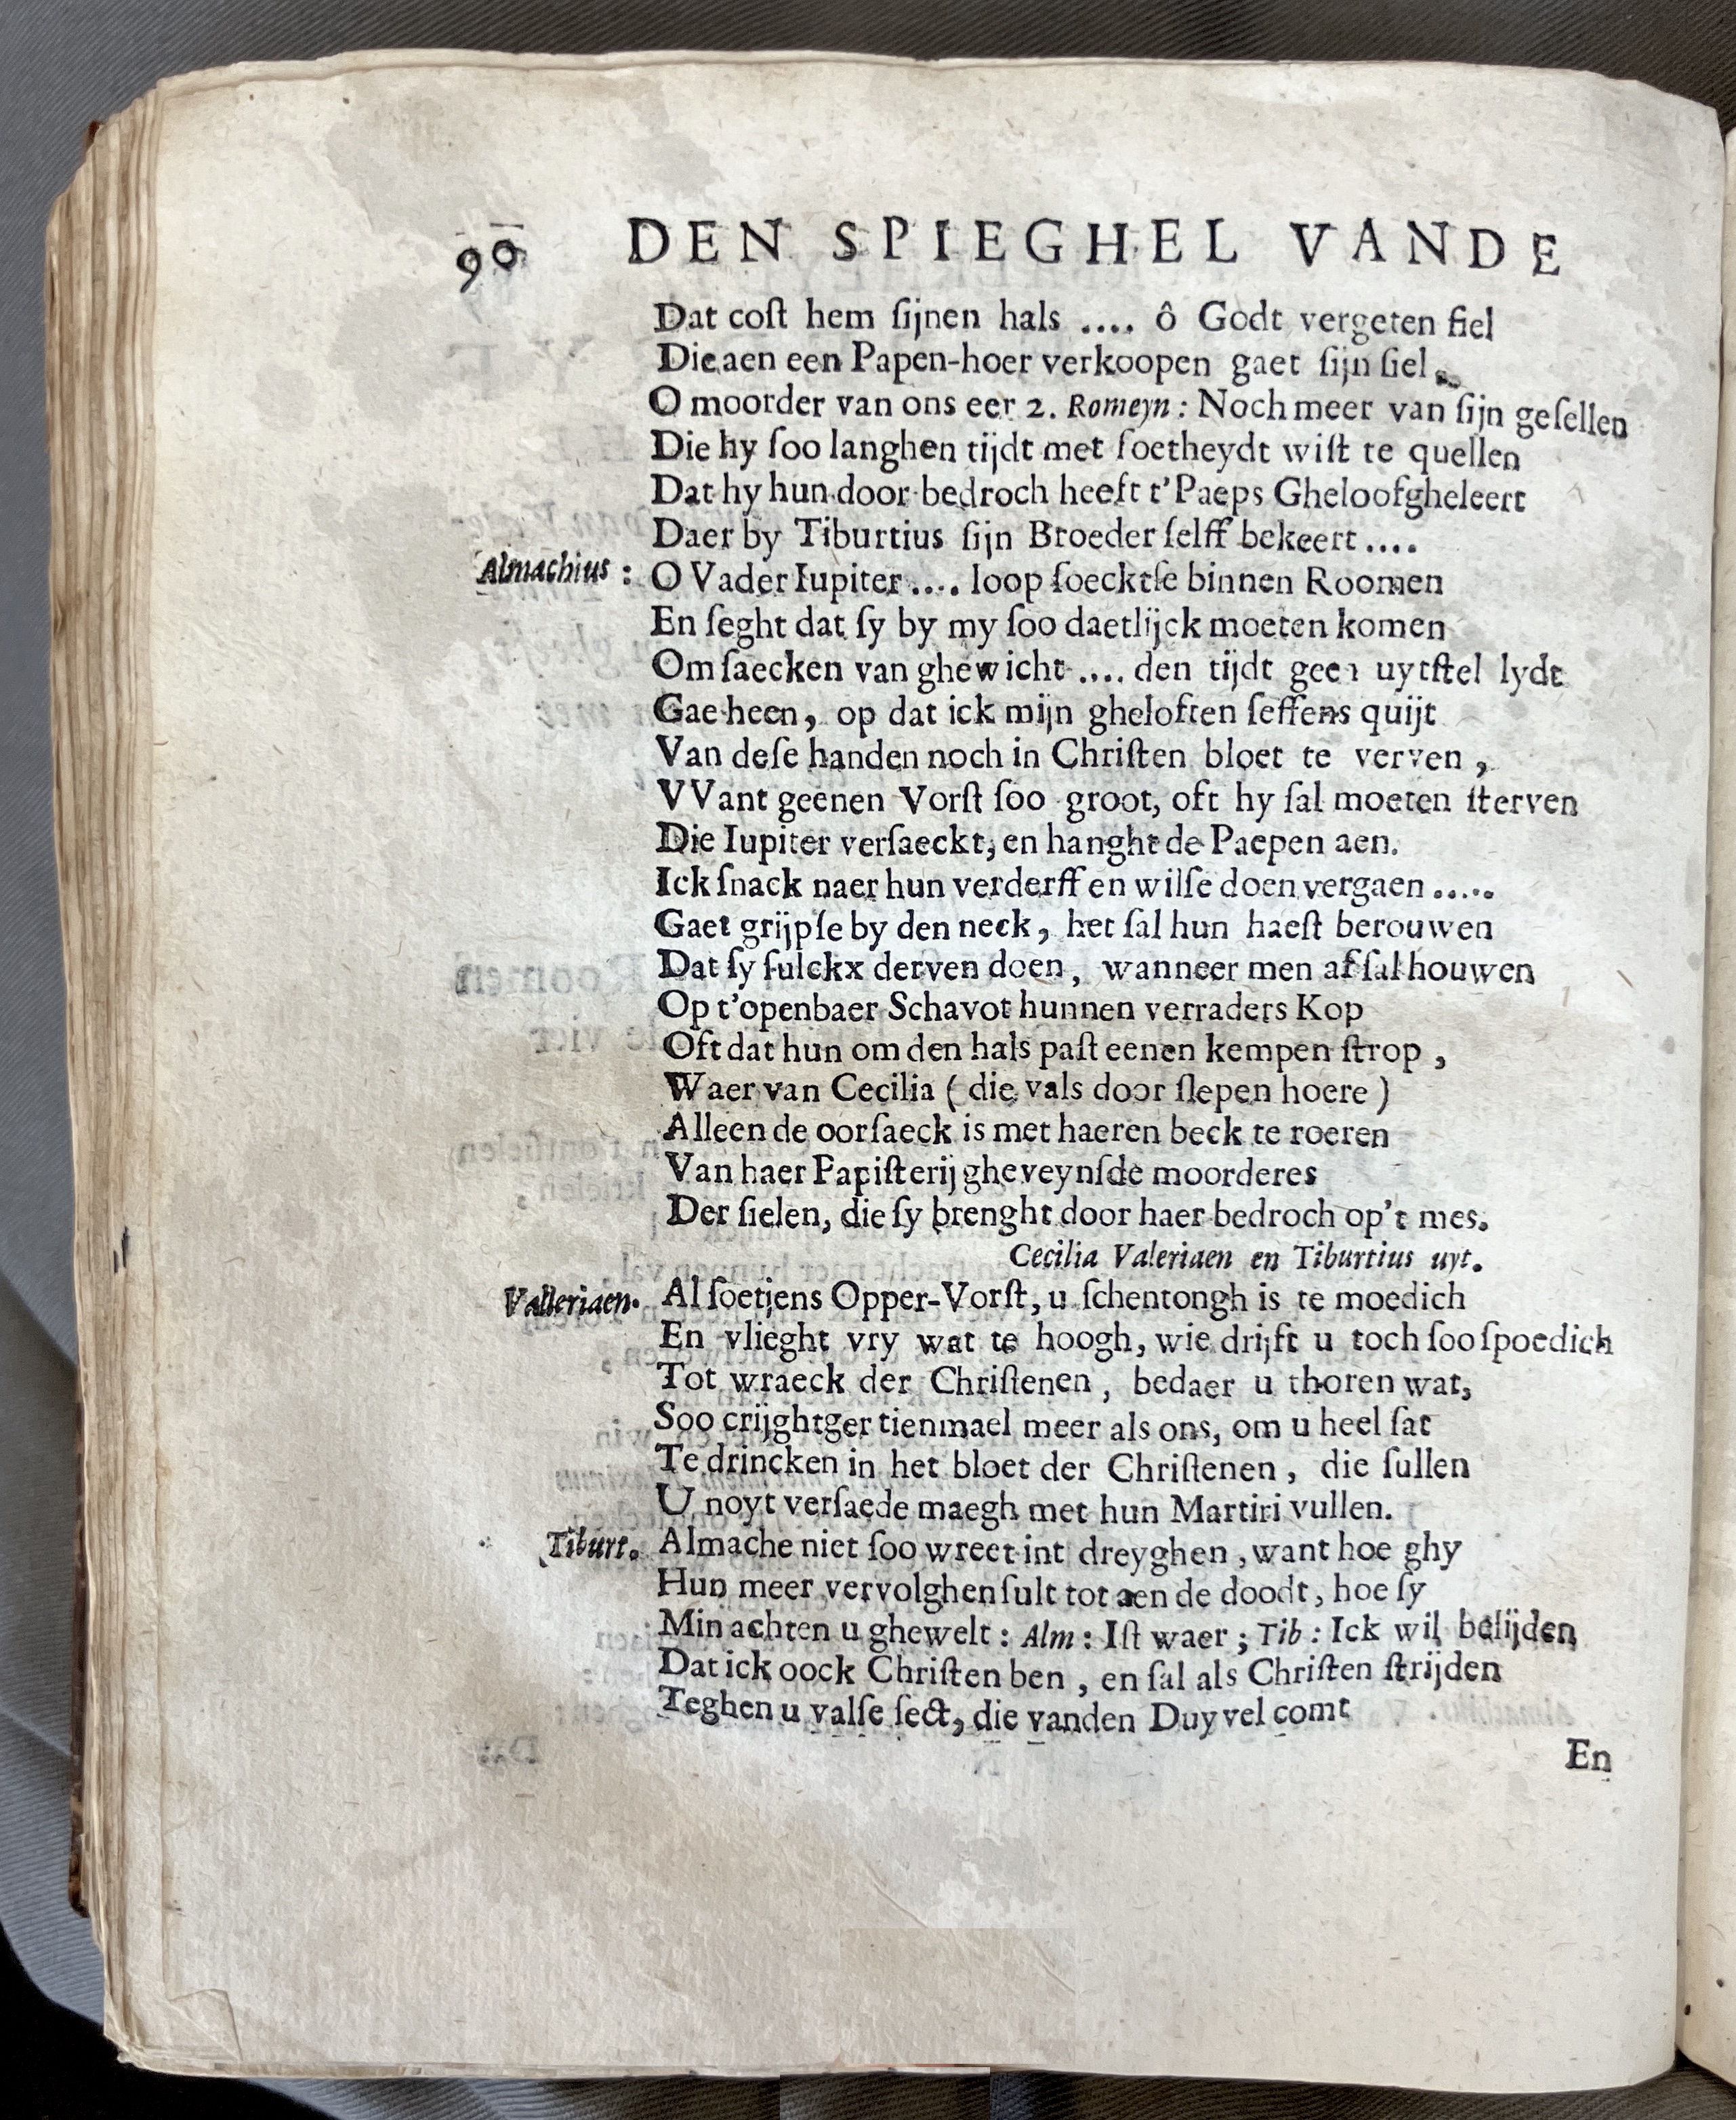 90 DEN SPIEGHEL VANDE
Dat coſt hem ſijnen hals .... ô Godt vergeten fiel
Die aen een Papen-hoer verkoopen gaet ſijn ſiel.
O moorder van ons eer 2. Romeyn : Noch meer van ſijn geſellen
Die hy ſoo langhen tijdt met ſoetheydt wiſt te quellen
Dat hy hun door bedroch heeft t'Paeps Gheloof gheleert
Daer by Tiburtius ſijn Broeder ſelff bekeert ....
Almachius : O Vader Iupiter .... loop ſoecktſe binnen Roomen
En ſeght dat ſy by my ſoo daetlijck moeten komen
Om ſaecken van ghewicht .... den tijdt geen uytſtel lydt
Gae heen, op dat ick mijn gheloften ſeffens quijt
Van deſe handen noch in Chriſten bloet te verven ,
VVant geenen Vorſt ſoo groot, oft hy ſal moeten ſterven
Die Iupiter verſaeckt, en hanght de Paepen aen.
Ick ſnack naer hun verderff en wilſe doen vergaen .....
Gaet grijpſe by den neck, het ſal hun haeſt berouwen
Dat ſy ſulckx derven doen, wanneer men af ſal houwen
Op t'openbaer Schavot hunnen verraders Kop
Oft dat hun om den hals paſt eenen kempen ſtrop ,
Waer van Cecilia ( die vals door ſlepen hoere )
Alleen de oorſaeck is met haeren beck te roeren
Van haer Papiſterij gheveynſde moorderes
Der ſielen, die ſy brenght door haer bedroch op't mes.
Cecilia Valeriaen en Tiburtius uyt.
Valleriaen. Al ſoetjens Opper-Vorſt, u ſchentongh is te moedich
En vlieght vry wat te hoogh, wie drijft u toch ſoo ſpoedich
Tot wraeck der Chriſtenen , bedaer u thoren wat,
Soo crijghtger tienmael meer als ons, om u heel ſat
Te drincken in het bloet der Chriſtenen , die ſullen
U noyt verſaede maegh met hun Martiri vullen.
Tiburt. Almache niet ſoo wreet int dreyghen , want hoe ghy
Hun meer vervolghen ſult tot aen de doodt, hoe ſy
Min achten u ghewelt : Alm : Iſt waer ; Tib : Ick wil belijden
Dat ick oock Chriſten ben , en ſal als Chriſten ſtrijden
Teghen u valſe ſect, die vanden Duyvel comt
En